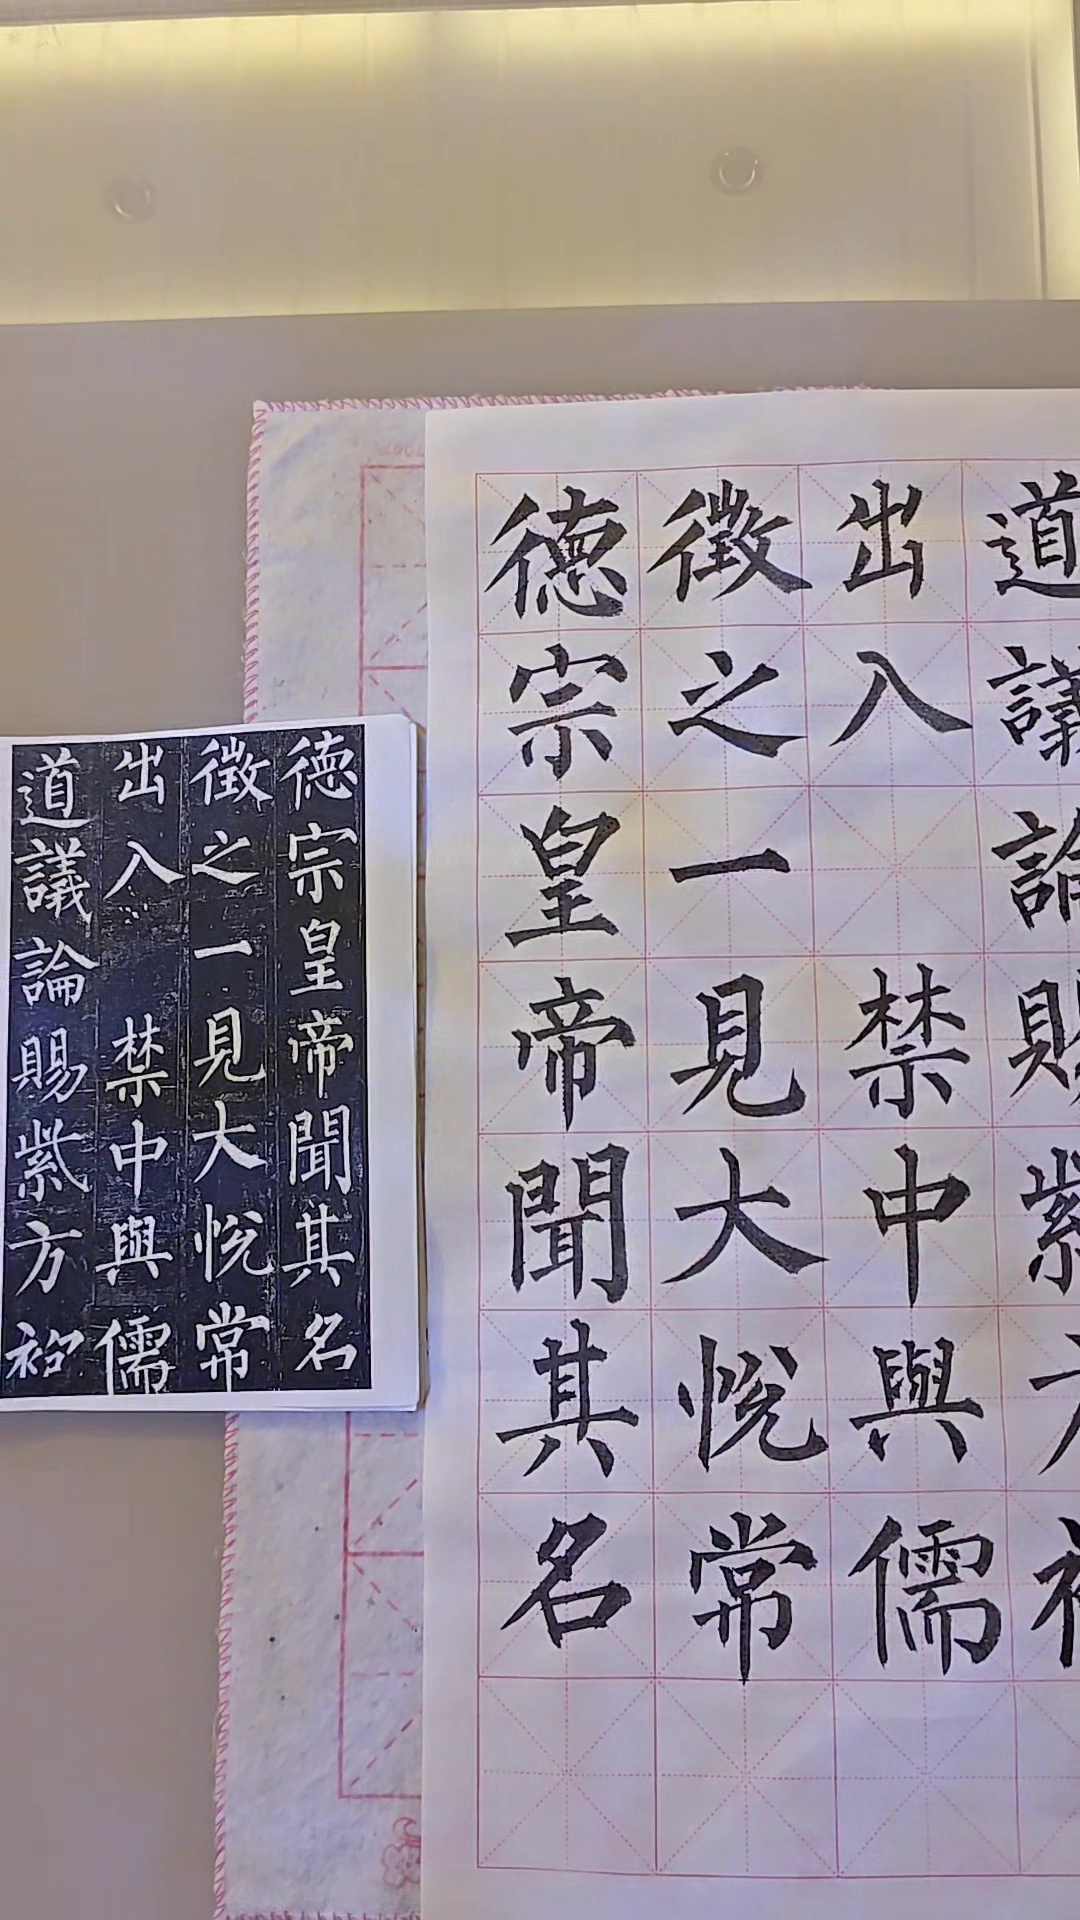 德宗皇帝聞其名
徵之一見大悅常
出入禁中與儒
道議論賜紫方袍
德宗皇帝聞其名
徵之一見大悅常
出入禁中與儒
道議論賜紫